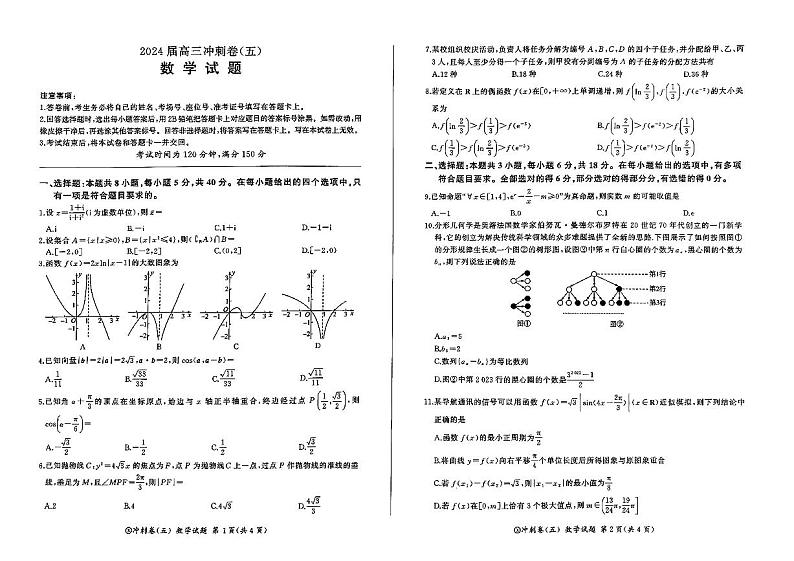 2024 届高三冲刺卷(五)
数 学 试 题
注意事项:
1.答卷前,考生务必将自己的姓名、考场号、座位号、准考证号填写在答题卡上。
2.回答选择题时,选出每小题答案后,用2B铅笔把答题卡上对应题目的答案标号涂黑。如需改动,用
橡皮擦干净后,再选涂其他答案标号。回答非选择题时,将答案写在答题卡上。写在本试卷上无效。
3.考试结束后,将本试卷和答题卡一并交回。
考试时间为 120 分钟,满分 150 分
一、选择题:本题共 8 小题,每小题 5 分,共 40 分。在每小题给出的四个选项中,只
有一项是符合题目要求的。
A.i B.-i C.1+i D.-1-i
2.设集合 A={x|x≥0},B={x|x²≤4},则(∁RA)∩B=
A.[-2,0] B.[-2,2] C.(0,2] D.[-2,0)
3.函数 f(x)=2xln|x-1|的大致图象为
A B C D
4.已知向量|b|=2|a|=2√3,a·b=2,则 cos⟨a,a-b⟩=
A.1/11 B.√33/33 C.√3/11 D.√11/11
5.已知角 α+π/3 的顶点在坐标原点,始边与 x 轴正半轴重合,终边经过点 P(1/2,√3/2),则
cos(α-π/6)=
A.-√3/2 B.-1/2 C.1/2 D.√3/2
6.已知抛物线 C:y²=4√3x 的焦点为 F,点 P 为抛物线 C 上一点,过点 P 作抛物线的准线的垂
线,垂足为 M,且∠MPF=2π/3,则|PF|=
A.2 B.4 C.4√3 D.4√3/3
冲刺卷(五) 数学试题 第 1 页(共 4 页)
7.某校组织校庆活动,负责人将任务分解为编号 A,B,C,D 的四个子任务,并分配给甲、乙、丙
3 人,且每人至少分得一个子任务,则甲没有分到编号为 A 的子任务的分配方法共有
A.12 种 B.18 种 C.24 种 D.36 种
8.若定义在 R 上的偶函数 f(x)在[0,+∞)上单调增,则 f(ln 2/3),f(1/3),f(e⁻²)的大小关
系为
A.f(ln 2/3)>f(1/3)>f(e⁻²) B.f(ln 2/3)>f(e⁻²)>f(1/3)
C.f(1/3)>f(ln 2/3)>f(e⁻²) D.f(1/3)>f(e⁻²)>f(ln 2/3)
二、选择题:本题共 3 小题,每小题 6 分,共 18 分。在每小题给出的选项中,有多项
符合题目要求。全部选对的得 6 分,部分选对的得部分分,有选错的得 0 分。
9.已知命题“∀x∈[1,4],eˣ-2/x-m≥0”为真命题,则实数 m 的可能取值是
A.-1 B.0 C.1 D.e
10.分形几何学是美籍法国数学家伯努瓦·曼德尔布罗特在 20 世纪 70 年代创立的一门新学
科,它的创立为解决传统科学领域的众多难题提供了全新的思路.下图展示了如何按照图①
的分形规律生长成一个图②的树形图,设图②中第 n 行白心圆的个数为 aₙ,黑心圆的个数为
bₙ,则下列说法正确的是
第1行
第2行
第3行
图① 图②
B.b₂=2
C.数列{aₙ-bₙ}为等比数列
D.图②中第 2 023 行的黑心圆的个数是(3²⁰²²-1)/2
11.某导航通讯的信号可以用函数 f(x)=√3|sin(4x-2π/3)|(x∈R)近似模拟,则下列结论中
正确的是
A.函数 f(x)的最小正周期为π/2
B.将曲线 y=f(x)向右平移π/4个单位长度后所得图象与原图象重合
C.若 f(x₁)-f(x₂)=√3,则|x₁-x₂|的最小值为π/8
D.若 f(x)在[0,m]上恰有 3 个极大值点,则 m∈(13/24π,19/24π]
冲刺卷(五) 数学试题 第 2 页(共 4 页)